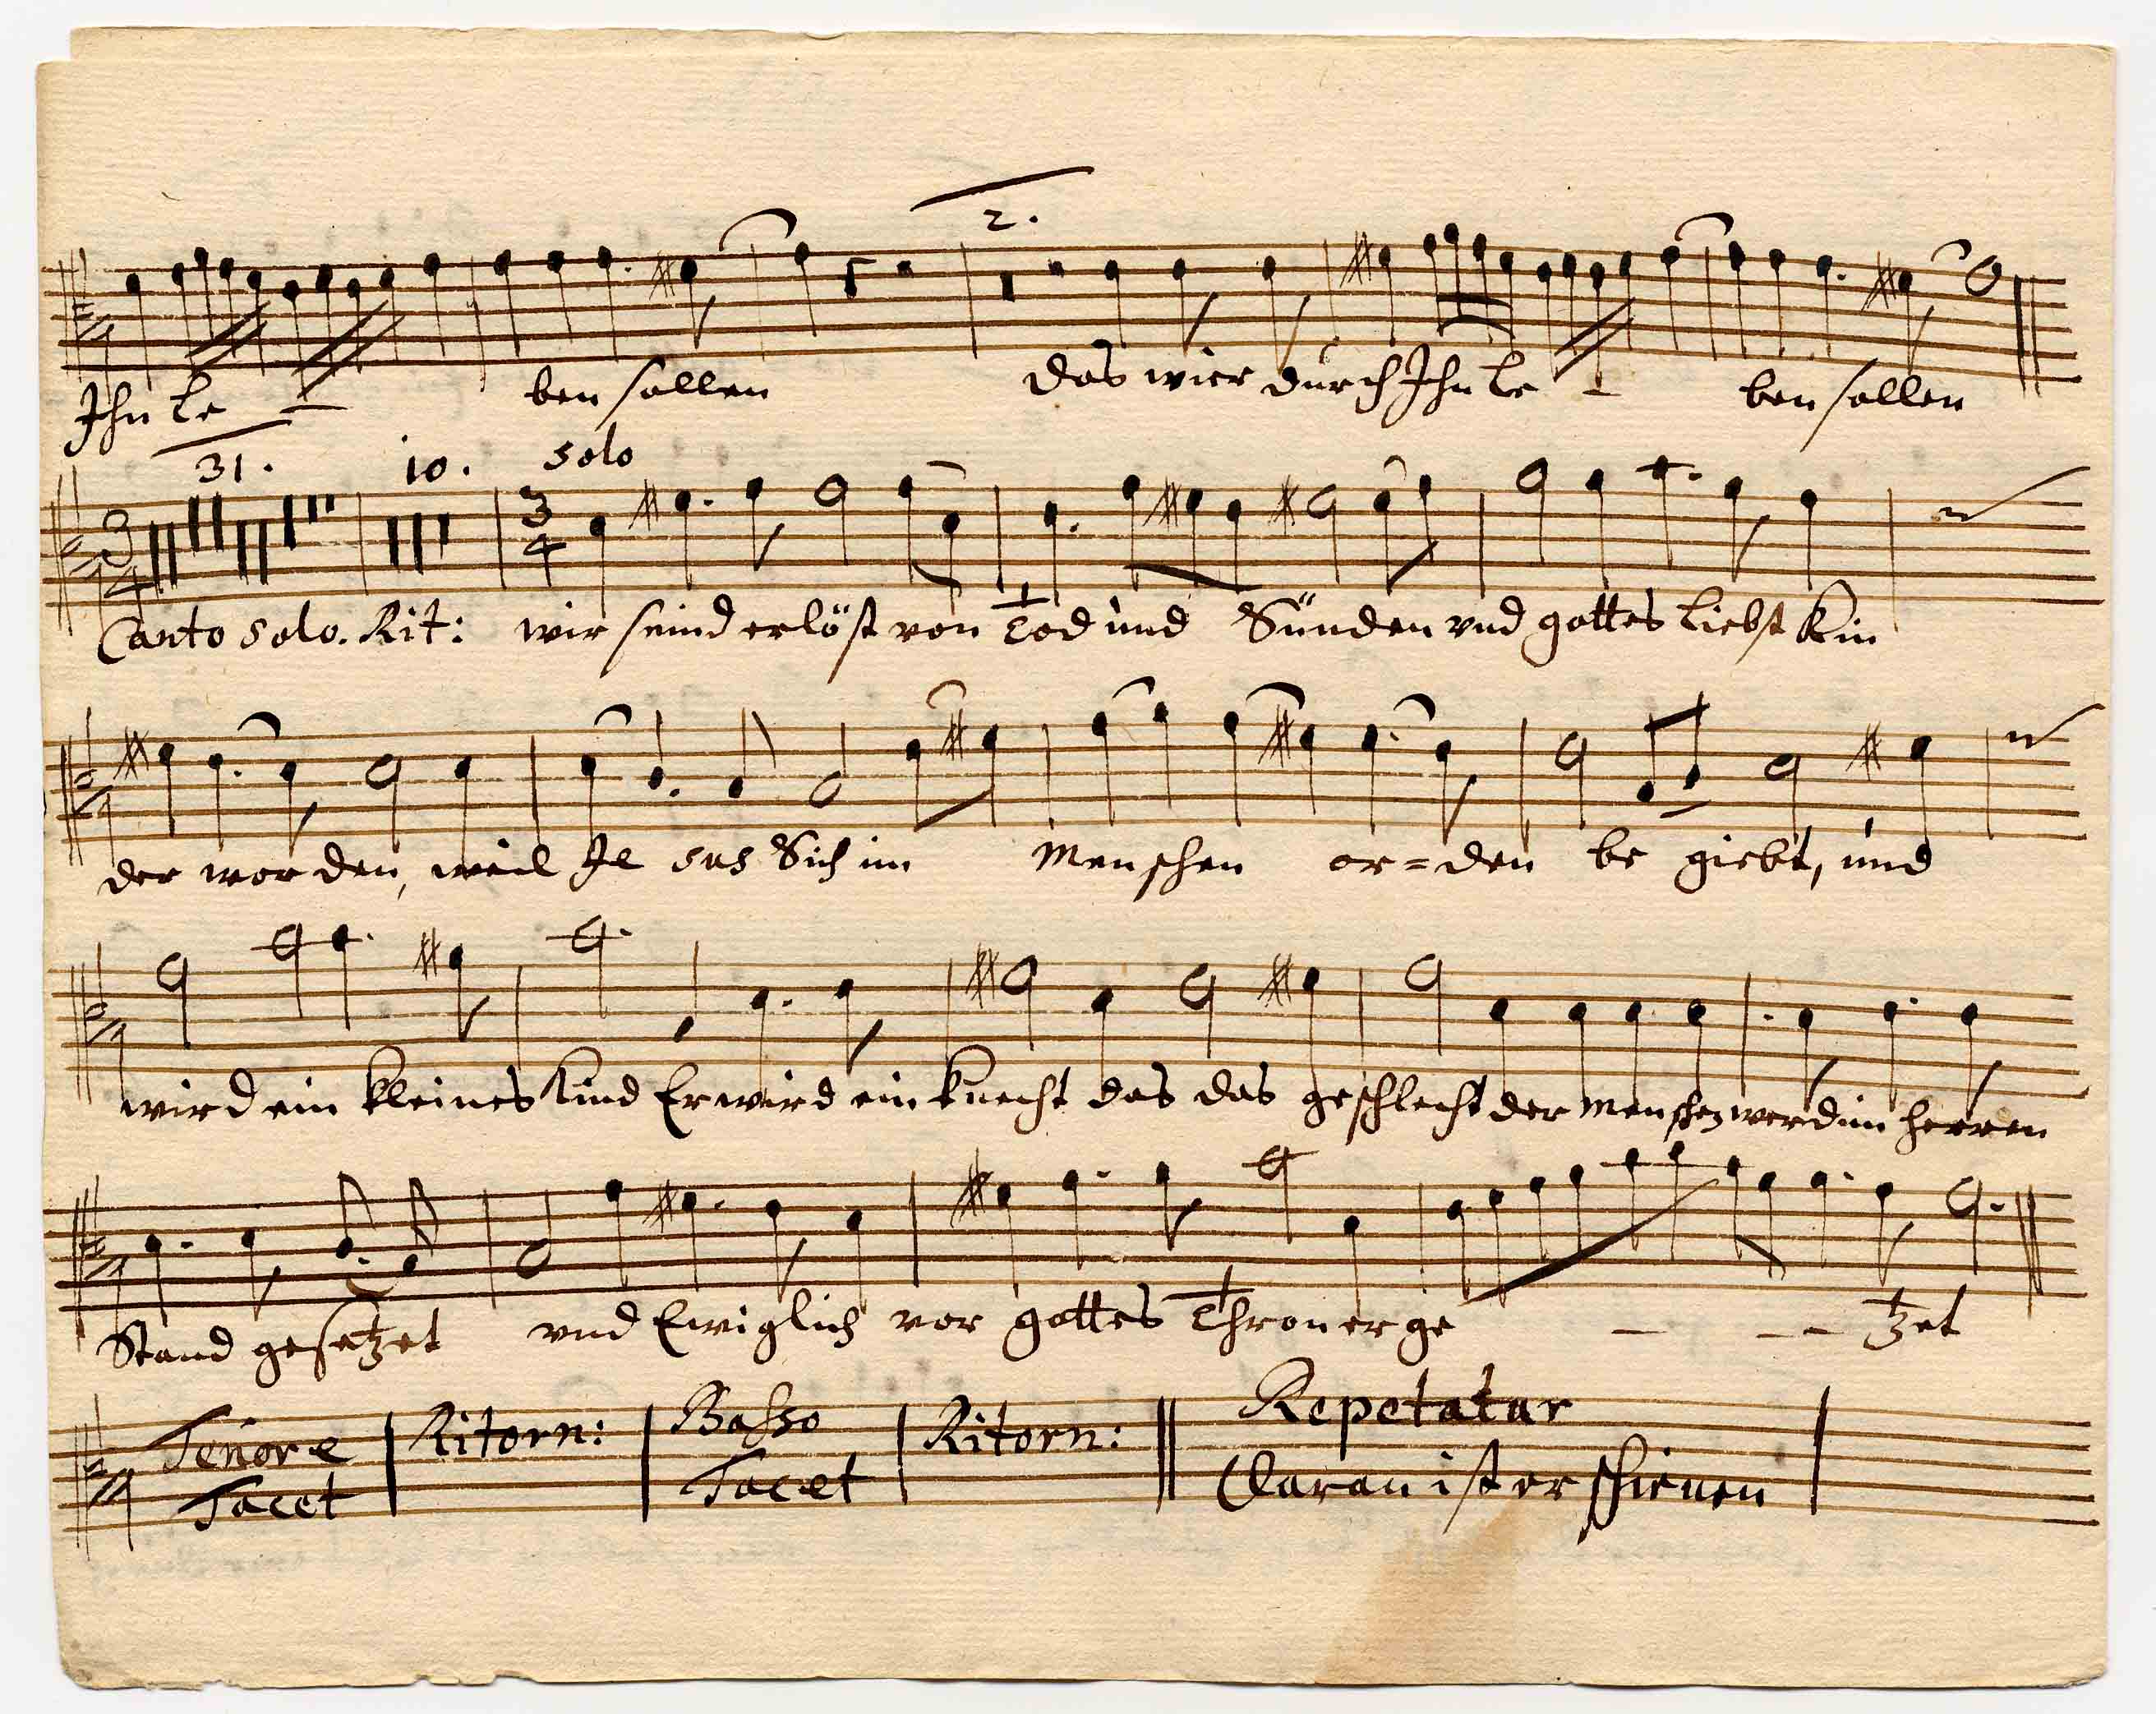 2.
Ihn le – ben sollen das wier durch Ihn le – ben sollen
31. 10. solo
3 4 3 4
Canto solo. Rit: wir seind erlöst von Tod und Sünden vnd gottes liebst Kin
der worden, weil Je sus Sich im Menschen or=den be giebt, und
wird ein kleines Kind Er wird ein knecht das das geschlecht der Menschen werd im herren
Stand gesetzet vnd Ewiglich vor gottes Thron er ge – – – tzet
Tenore Ritorn: Basso Ritorn: Repetatur
Tacet Tacet Daran ist erschienen